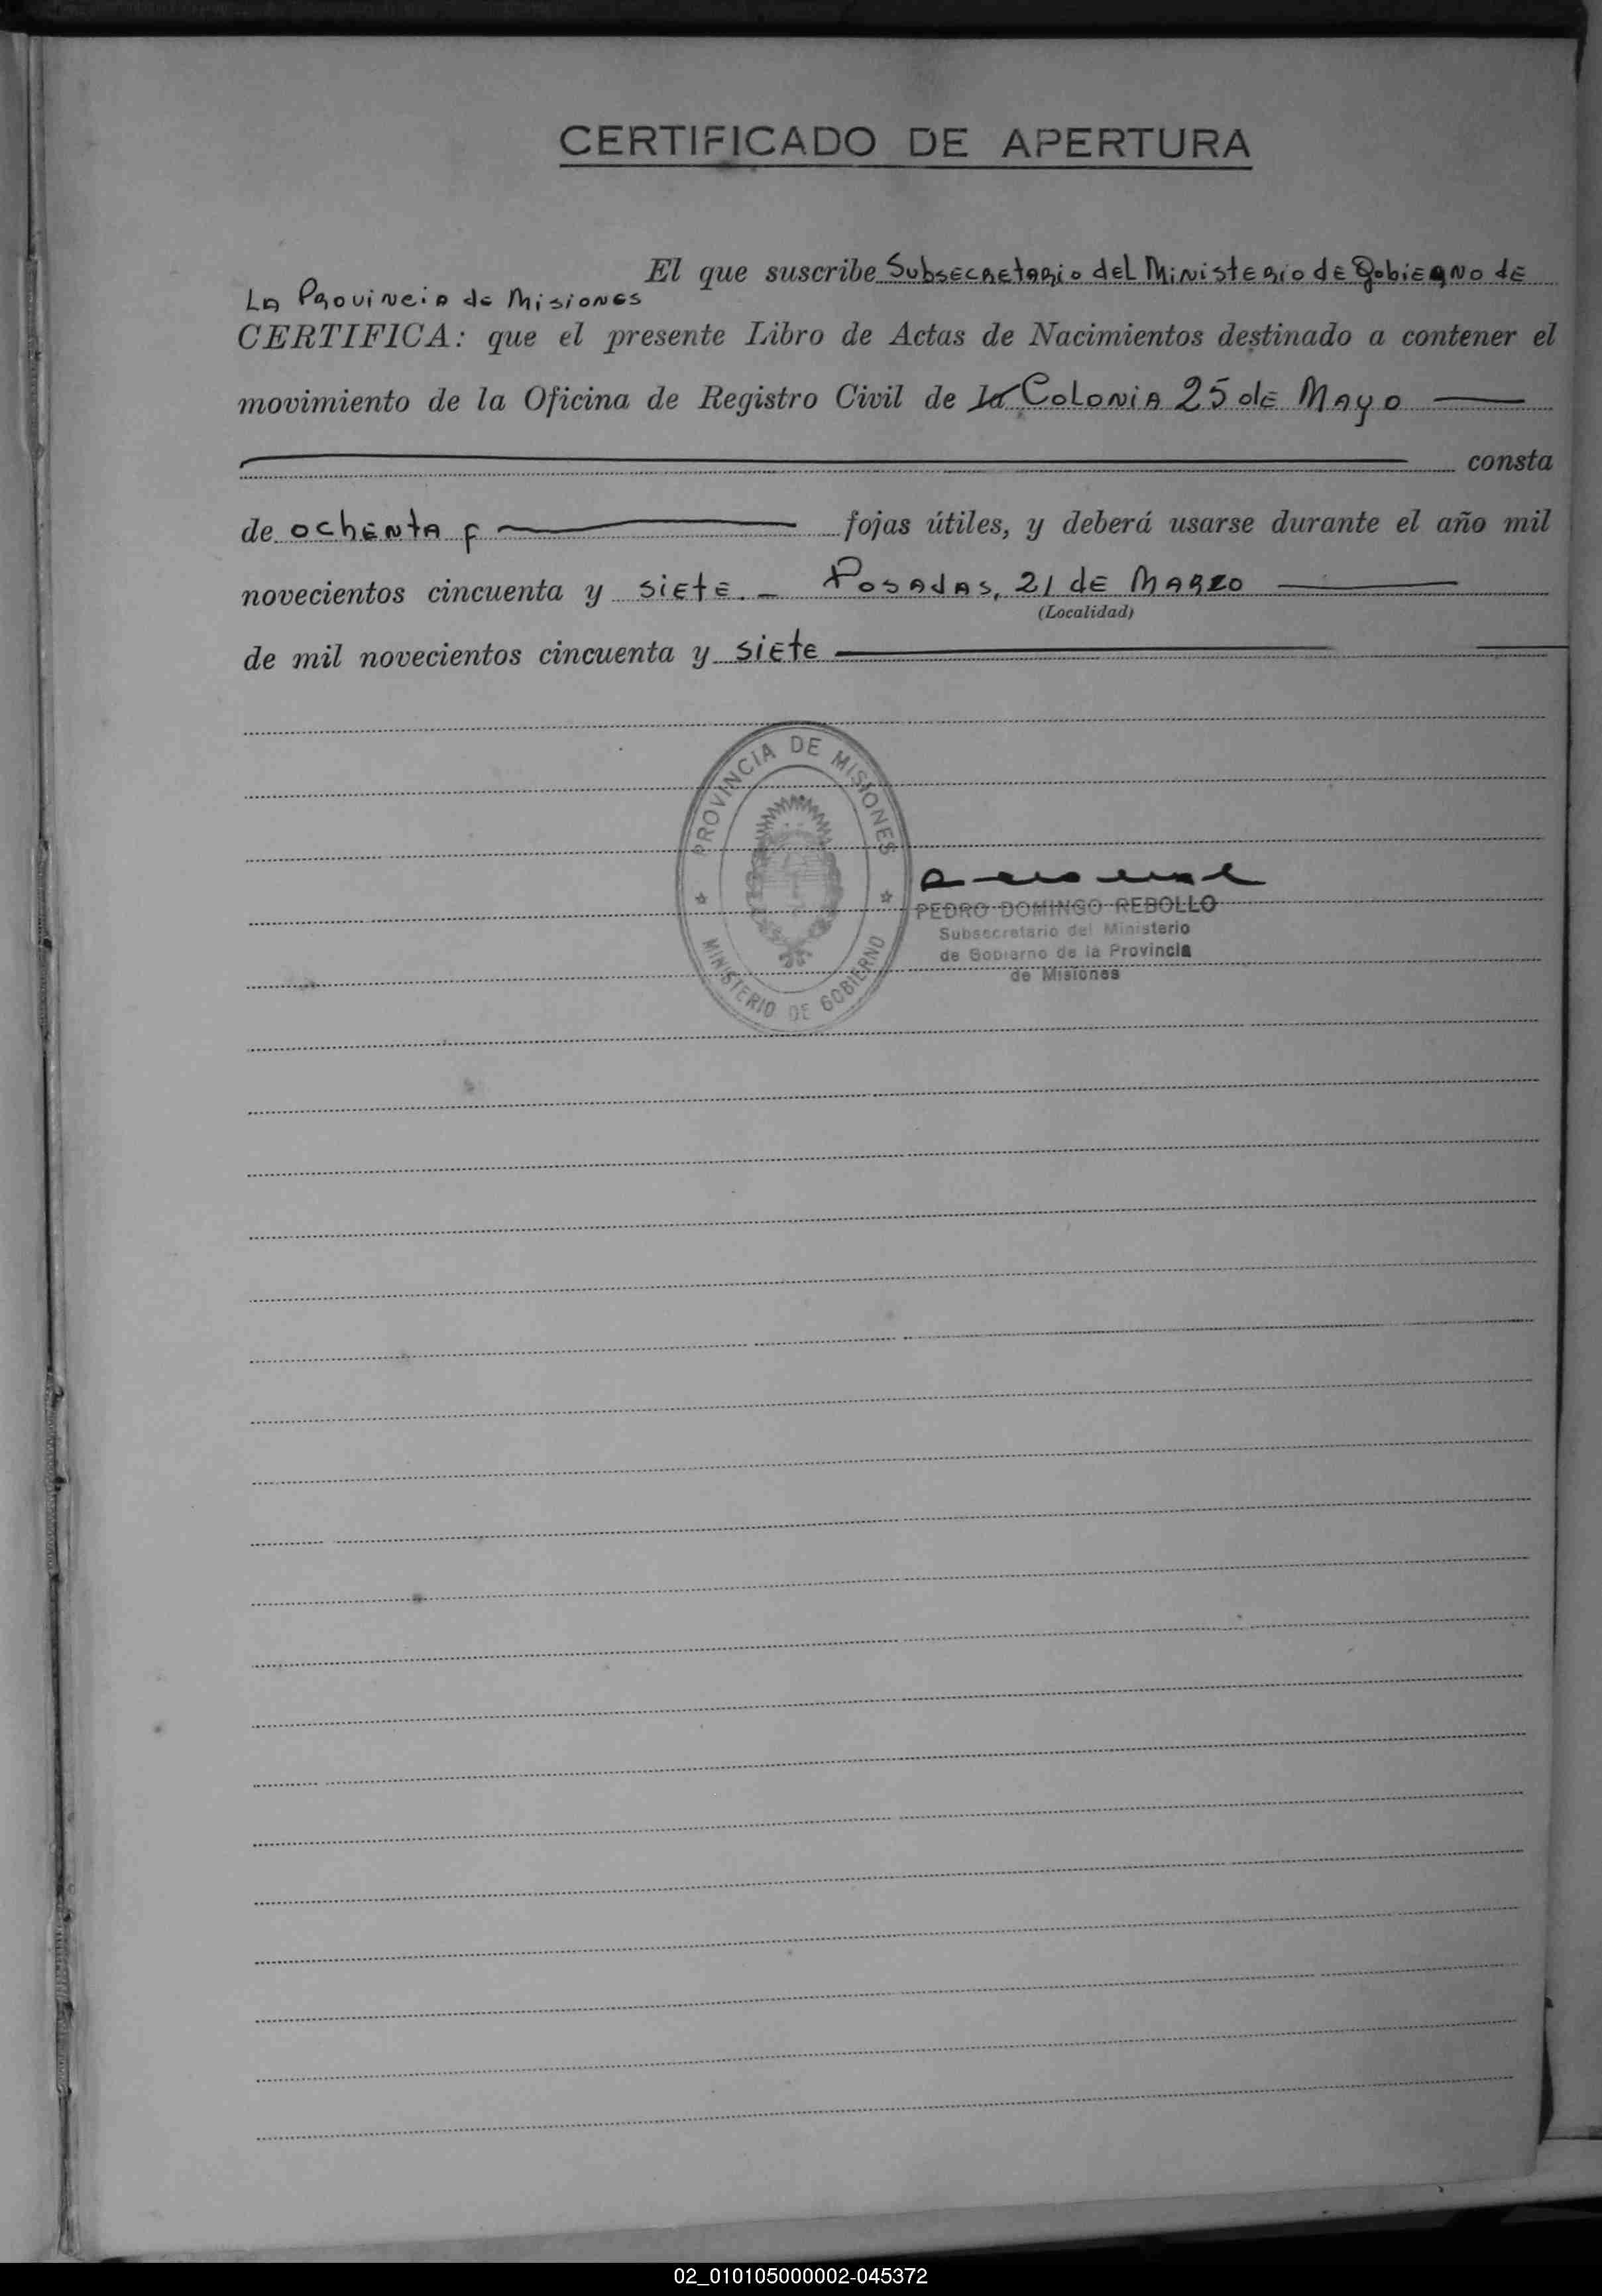 CERTIFICADO DE APERTURA
El que suscribe Subsecretario del Ministerio de Gobierno de
La Provincia de Misiones
CERTIFICA: que el presente Libro de Actas de Nacimientos destinado a contener el
movimiento de la Oficina de Registro Civil de la Colonia 25 de Mayo
consta
de ochenta fojas útiles, y deberá usarse durante el año mil
novecientos cincuenta y siete.- Posadas, 21 de Marzo
(Localidad)
de mil novecientos cincuenta y siete
PROVINCIA DE MISIONES
MINISTERIO DE GOBIERNO
PEDRO DOMINGO REBOLLO
Subsecretario del Ministerio
de Gobierno de la Provincia
de Misiones
02_010105000002-045372